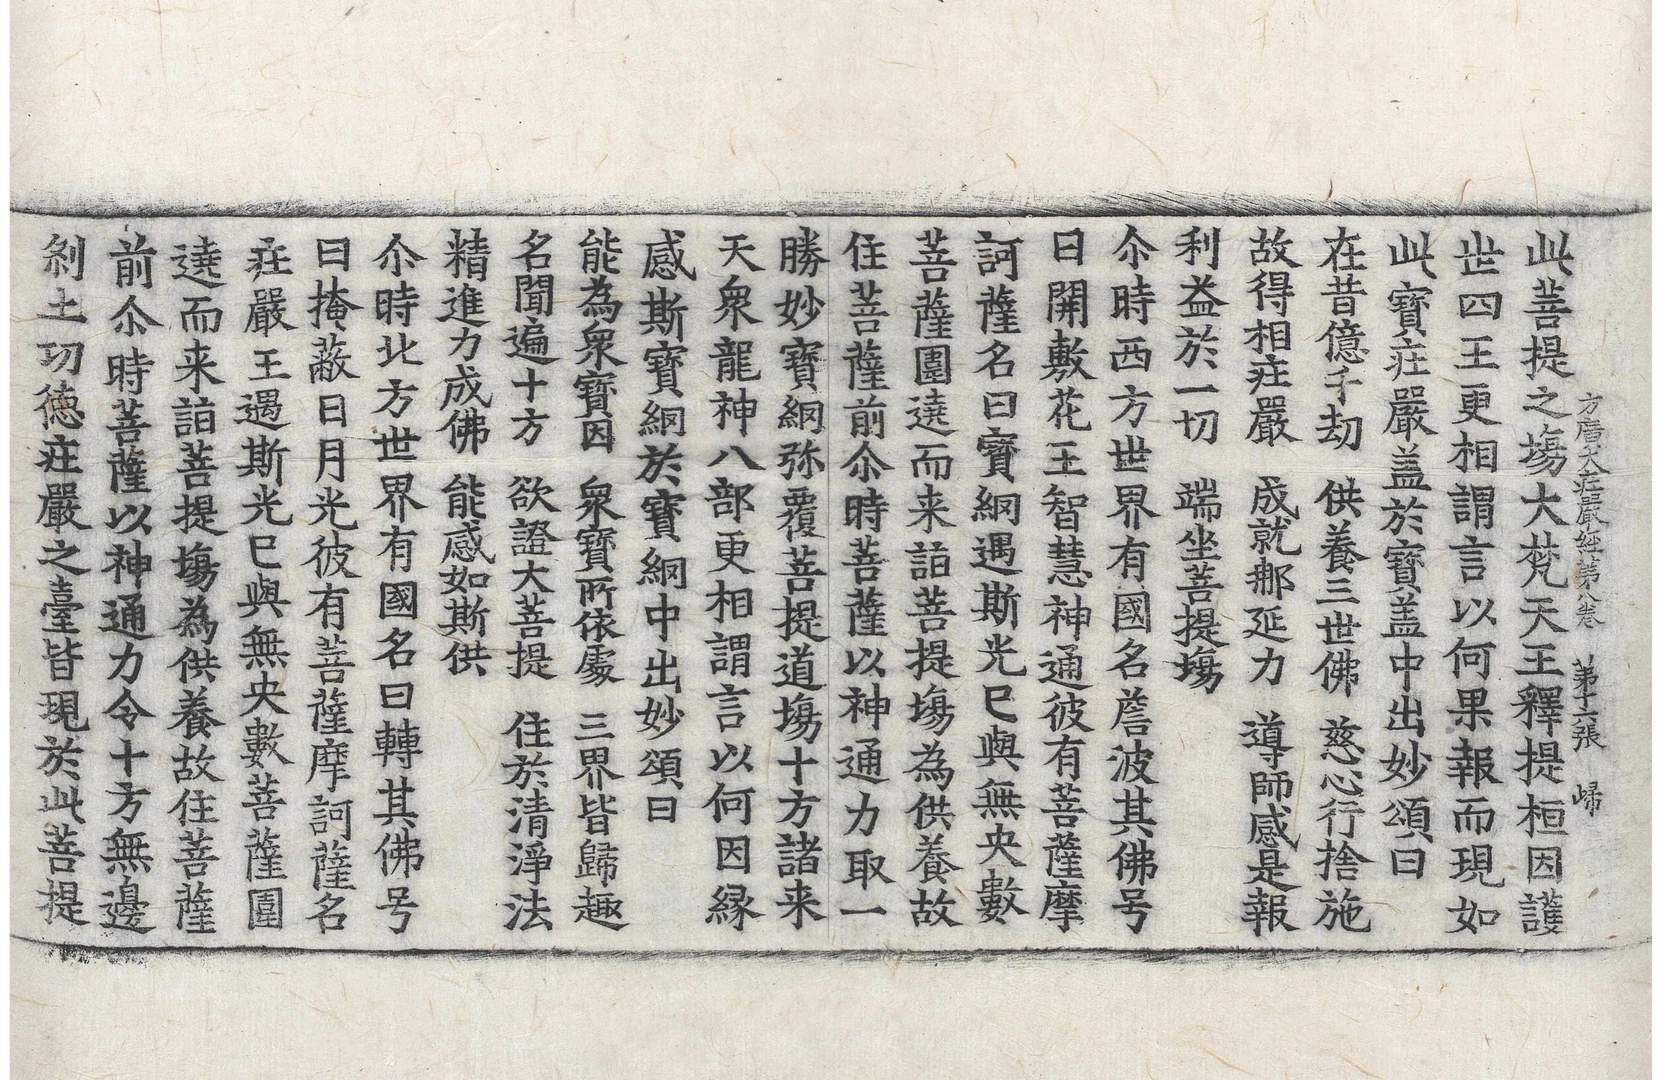 方廣大庄嚴經第八卷　第十六張　歸
此菩提之塲大梵天王釋提桓因護
世四王更相謂言以何果報而現如
此寶庄嚴盖於寶盖中出妙頌曰
在昔億千劫　供養三世佛　慈心行捨施
故得相庄嚴　成就那延力　導師感是報
利益於一切　端坐菩提塲
尒時西方世界有國名詹波其佛号
曰開敷花王智慧神通彼有菩薩摩
訶薩名曰寶網遇斯光已與無央數
菩薩圍遶而来詣菩提塲為供養故
住菩薩前尒時菩薩以神通力取一
勝妙寶網弥覆菩提道塲十方諸来
天衆龍神八部更相謂言以何因縁
感斯寶網於寶網中出妙頌曰
能為衆寶因　衆寶所依處　三界皆歸趣
名聞遍十方　欲證大菩提　住於清淨法
精進力成佛　能感如斯供
尒時北方世界有國名曰轉其佛号
曰掩蔽日月光彼有菩薩摩訶薩名
庄嚴王遇斯光已與無央數菩薩圍
遶而来詣菩提塲為供養故住菩薩
前尒時菩薩以神通力令十方無邊
刹土功德庄嚴之臺皆現於此菩提